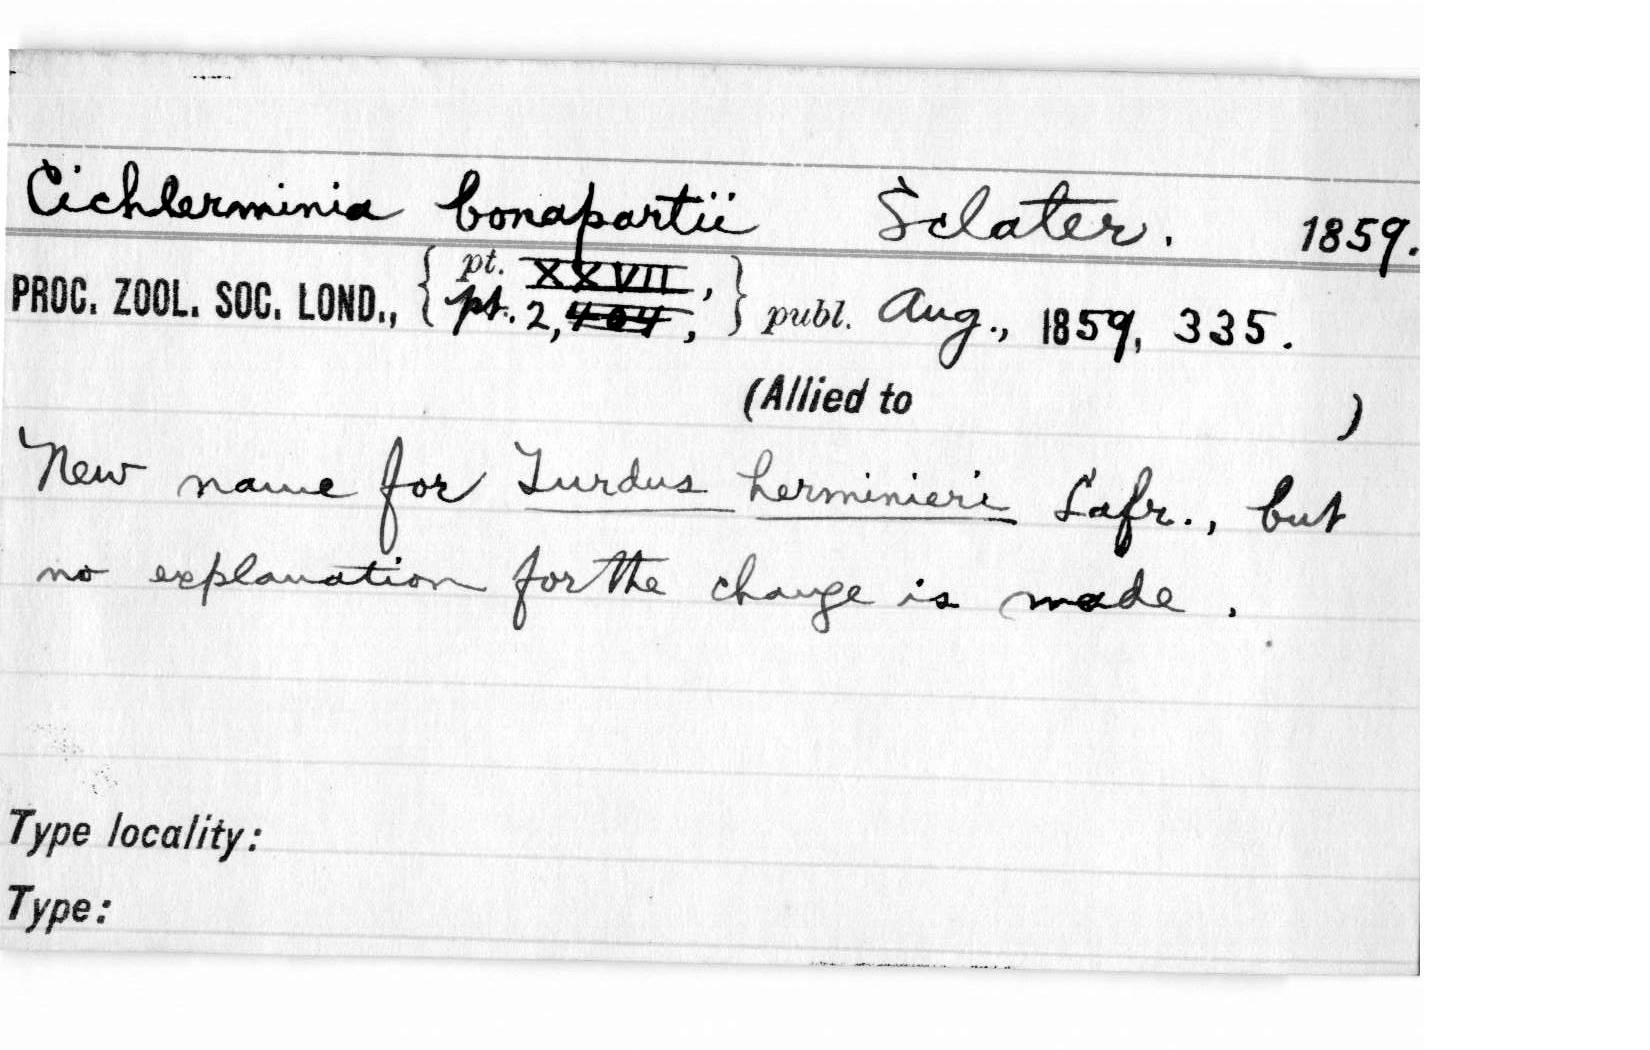 Cichlerminia bonapartii Sclater. 1859.
PROC. ZOOL. SOC. LOND., { pt. XXVII, pt. 2, 404, } publ. Aug., 1859, 335.
(Allied to )
New name for Turdus herminieri Lafr., but
no explanation for the change is made.
Type locality:
Type: